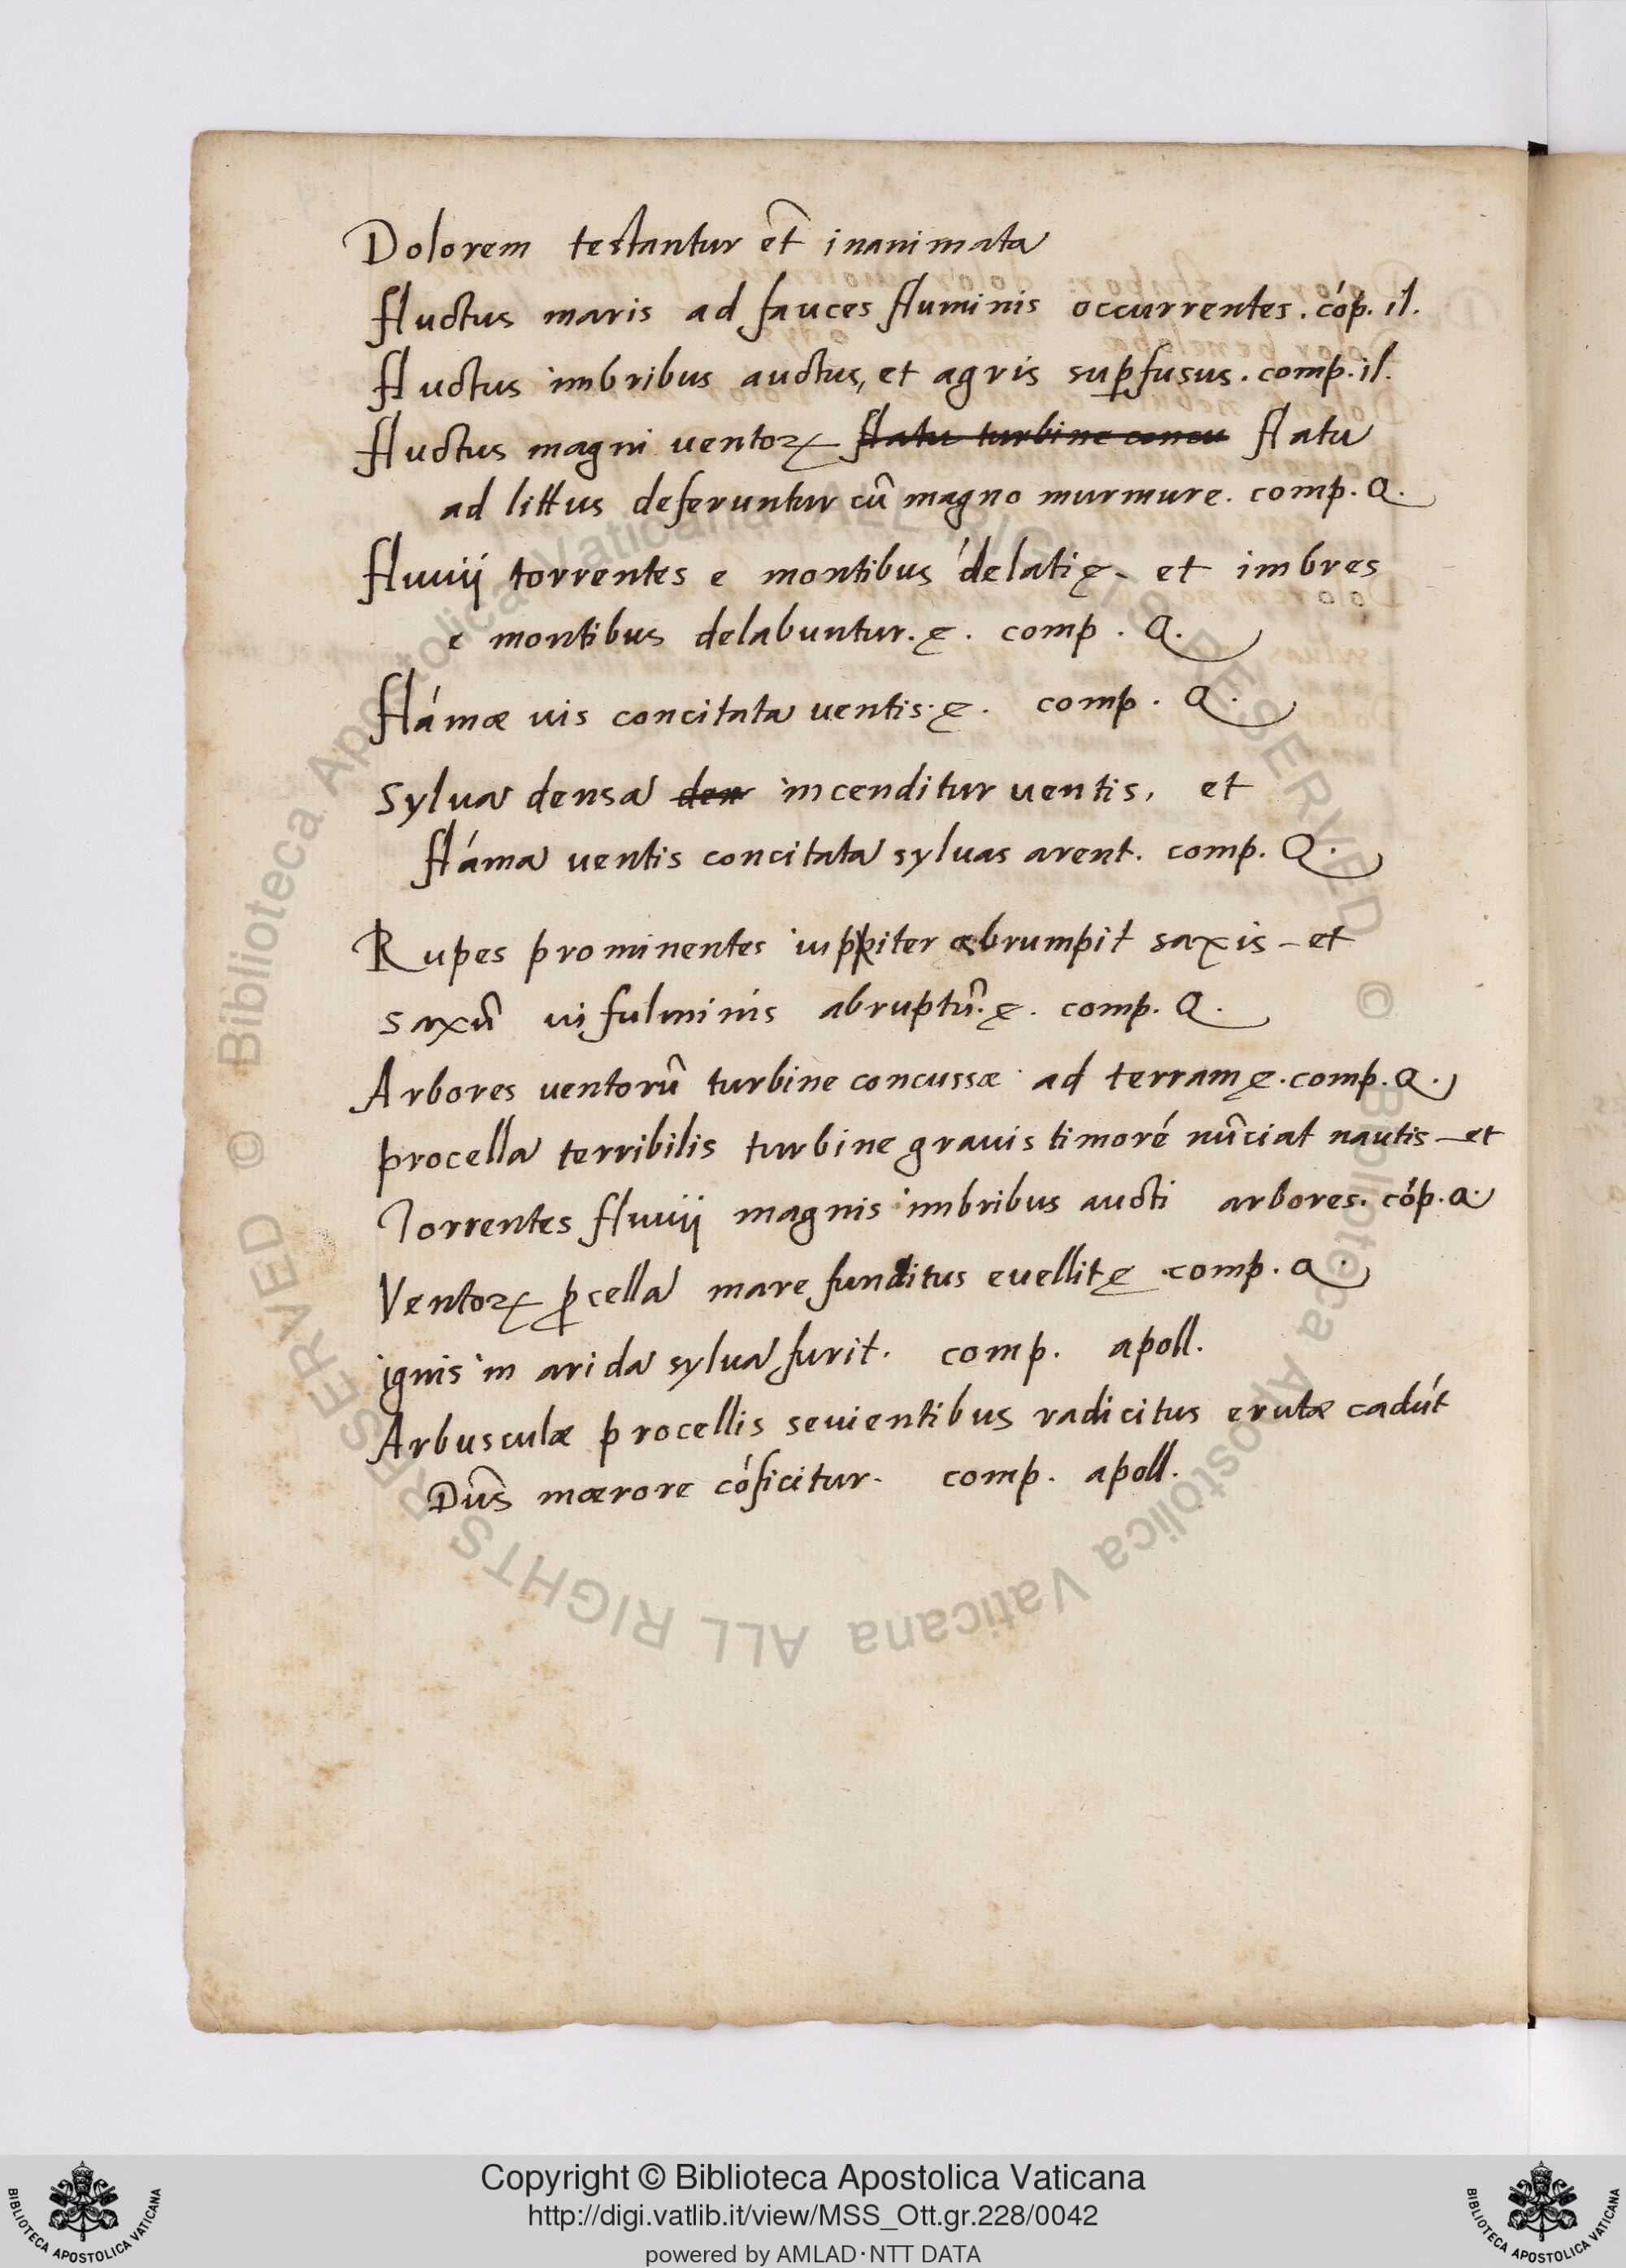 Dolorem testantur et̃ inanimata
fluctus maris ad fauces fluminis occurrentes. cóp. il.
fluctus imbribus auctus, et agris suꝑfusus. comp. il.
fluctus magni ventoꝝ flatu turbine concu flatu
ad littus deferuntur cũ magno murmure. comp. Q.
fluuij torrentes e montibus delati ę - et imbres
e montibus delabuntur. ę. comp. Q.
flámæ uis concitata uentis. ę. comp. Q.
Sylua densa den incenditur uentis, et
fláma uentis concitata syluas arent. comp. Q.
Rupes prominentes iuppiter abrumpit saxis - et
saxũ ui fulminis abruptũ. ę. comp. Q.
Arbores ventorũ turbine concussæ ad terram ę. comp. Q.
procella terribilis turbine grauis timoré nũciat nautis - et
Torrentes fluuij magnis imbribus aucti arbores. cóp. Q.
Ventoꝝ ꝓcella mare funditus euellit ę. comp. Q.
ignis in arida sylua furit. comp. apoll.
Arbusculæ procellis seuientibus radicitus erutæ cadút
Dũs mœrore cóficitur. comp. apoll.
© Biblioteca Apostolica Vaticana ALL RIGHTS RESERVED © Biblioteca Apostolica Vaticana ALL RIGHTS RESERVED
Copyright © Biblioteca Apostolica Vaticana
http://digi.vatlib.it/view/MSS_Ott.gr.228/0042
powered by AMLAD·NTT DATA
BIBLIOTECA APOSTOLICA VATICANA
BIBLIOTECA APOSTOLICA VATICANA